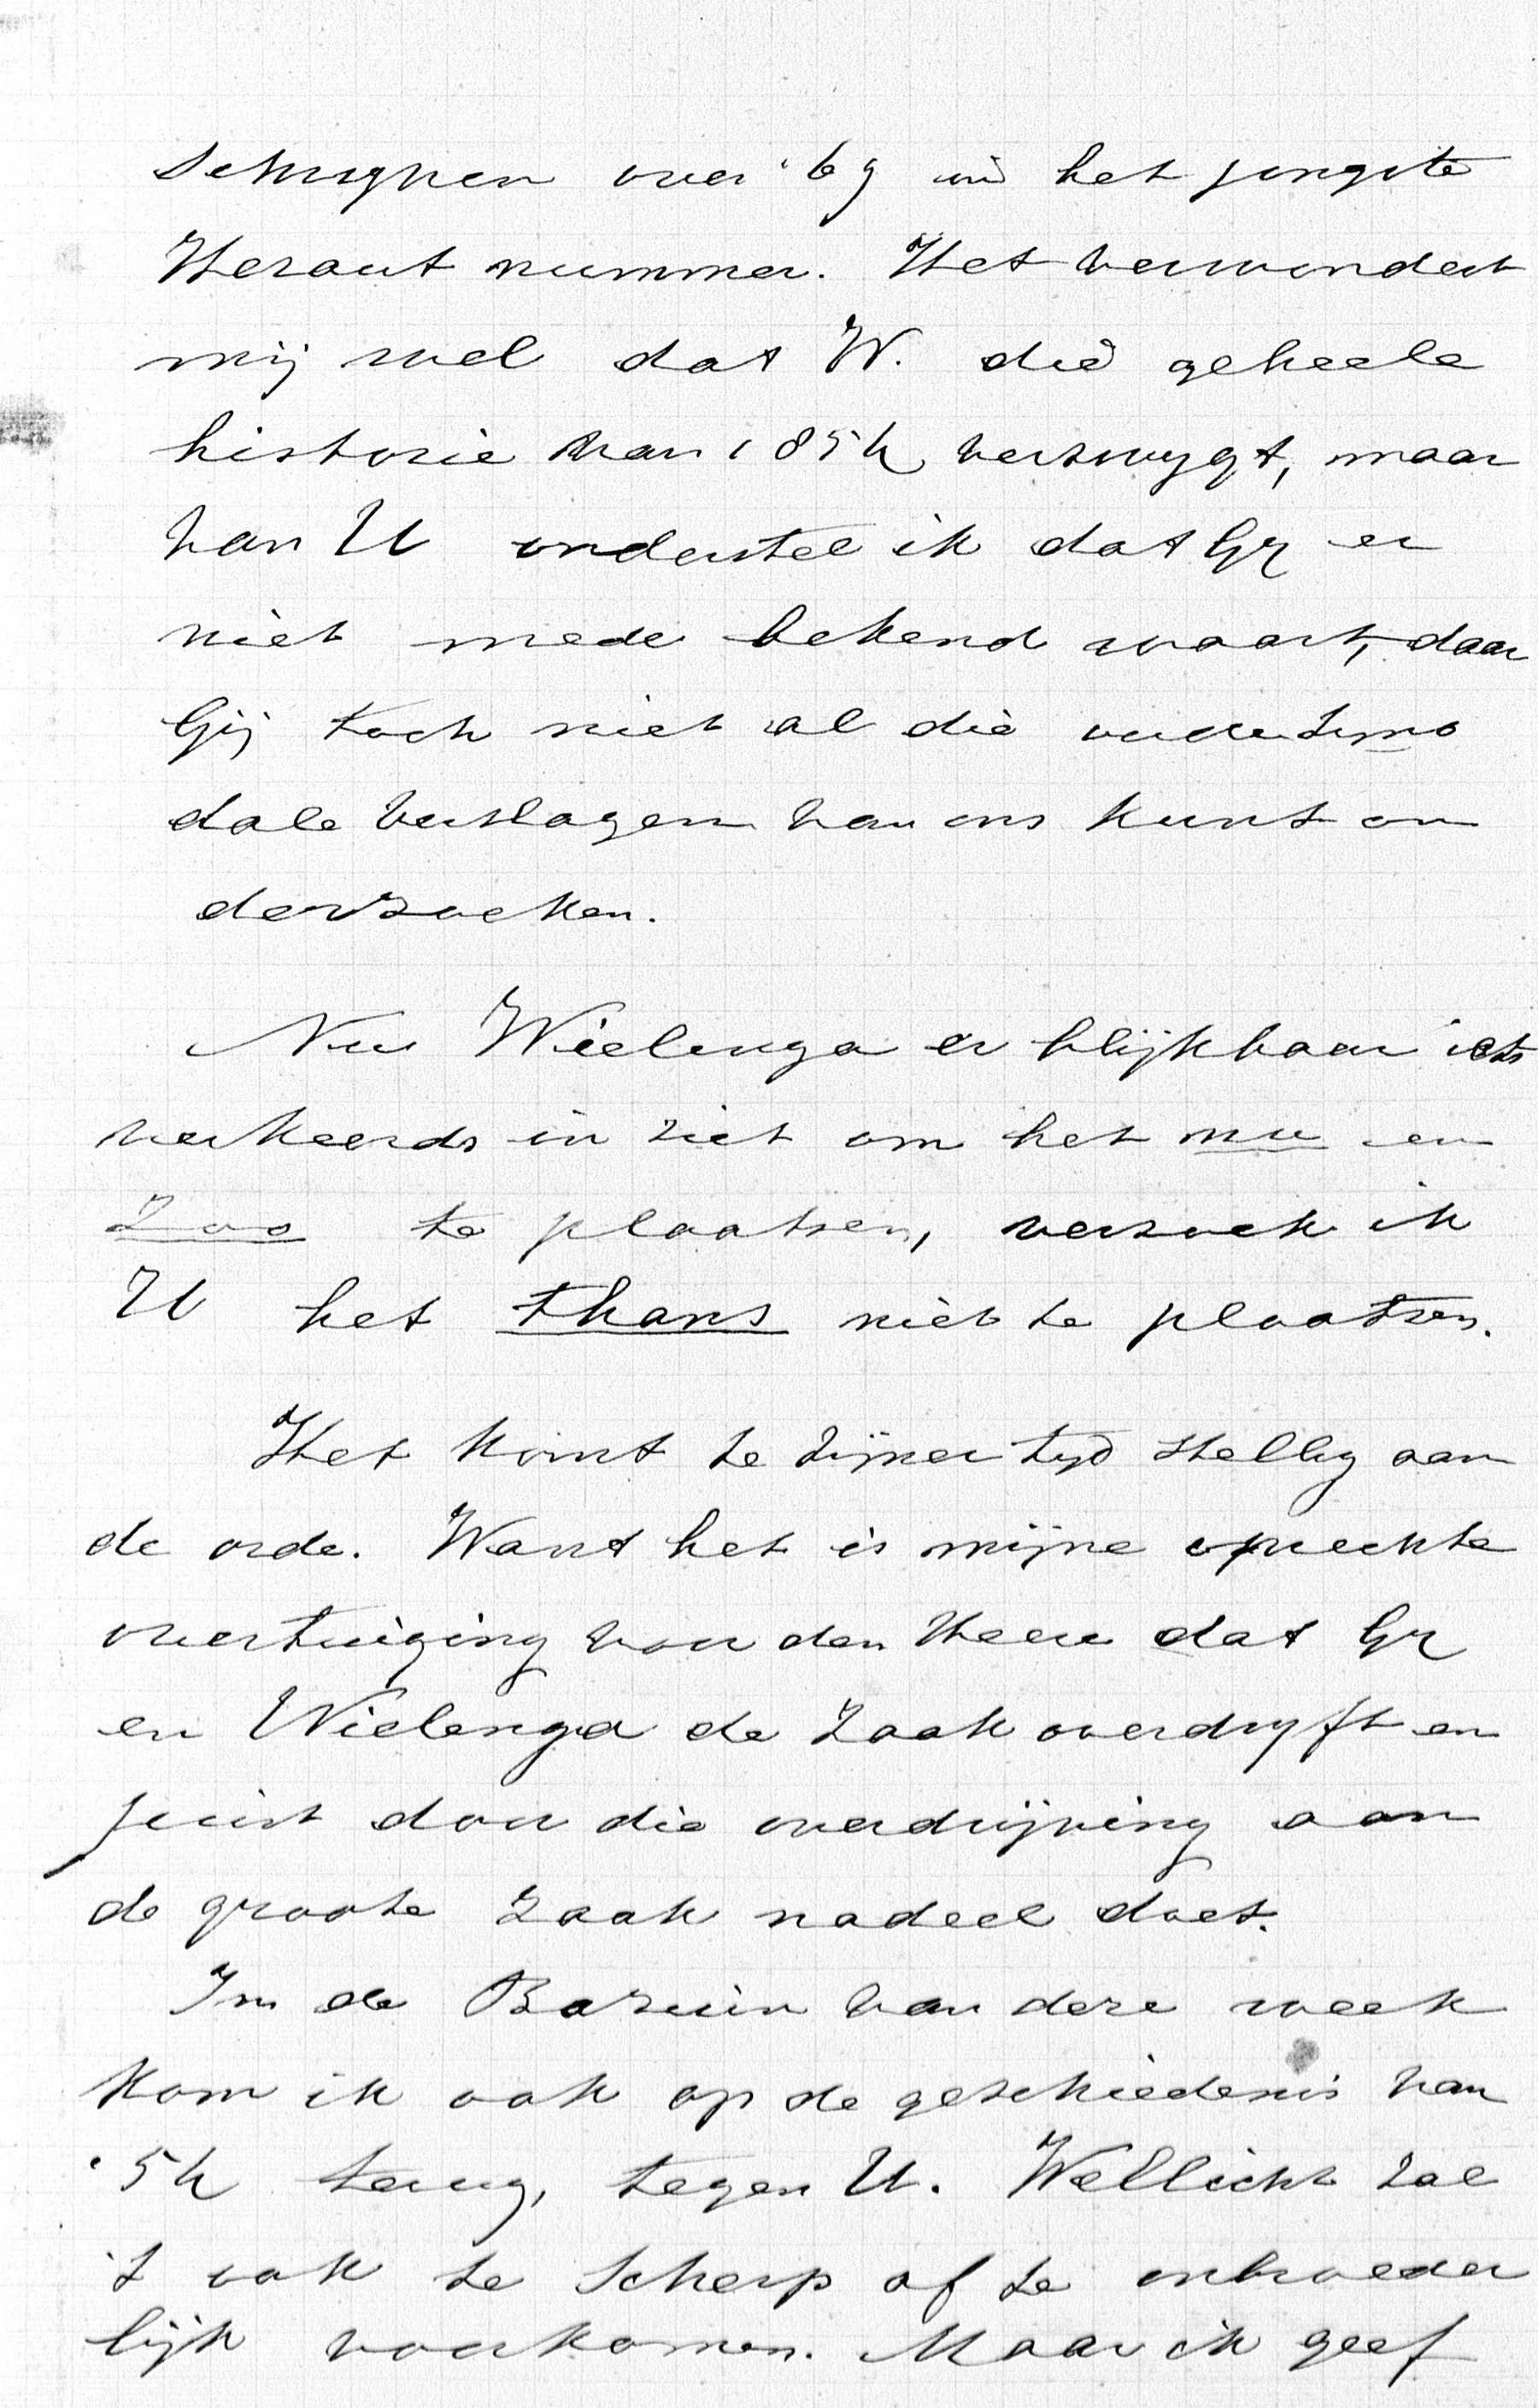 schrijven over '69 in het jongste
Heraut nummer. Het verwondert
mij wel dat W. die geheele
historie van 1854 verzwygt, maar
van U onderstel ik dat Gy er
niet mede bekend waart, daar
Gij toch niet al die oude Syno
dale verslagen van ons kunt on
derzoeken.
Nu Wielenga er blijkbaar iets
verkeerds in ziet om het nu en
zoo te plaatsen, verzoek ik
U het thans niet te plaatsen.
Het komt te zijner tyd stellig aan
de orde. Want het is mijne oprechte
overtuiging voor den Heere dat Gy
en Wielenga de zaak overdryft en
juist door die overdrijving aan
de groote zaak nadeel doet.
In de Bazuin van deze week
kom ik ook op de geschiedenis van
'54 terug, tegen U. Wellicht zal
't ook te scherp of te onbroeder
lijk voorkomen. Maar ik geef